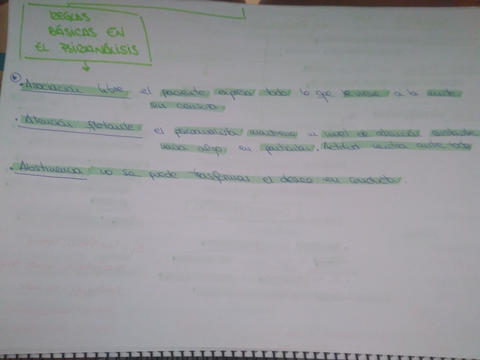 REGLAS
BÁSICAS EN
EL PSICOANÁLISIS
• Asociación libre el paciente expresa todo lo que le viene a la mente
sin censura
• Atención flotante el psicoanalista mantiene un nivel de atención constante
hacia algo en particular. Actitud neutra ante todo
• Abstinencia no se puede trasformar el deseo en conducta.